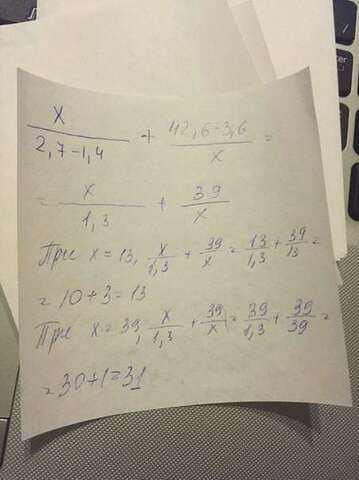 x/2,7-1,4 + 42,6-3,6/x =
= x/1,3 + 39/x
При x = 13, x/1,3 + 39/x = 13/1,3 + 39/13 =
= 10 + 3 = 13
При x = 39, x/1,3 + 39/x = 39/1,3 + 39/39 =
= 30 + 1 = 31